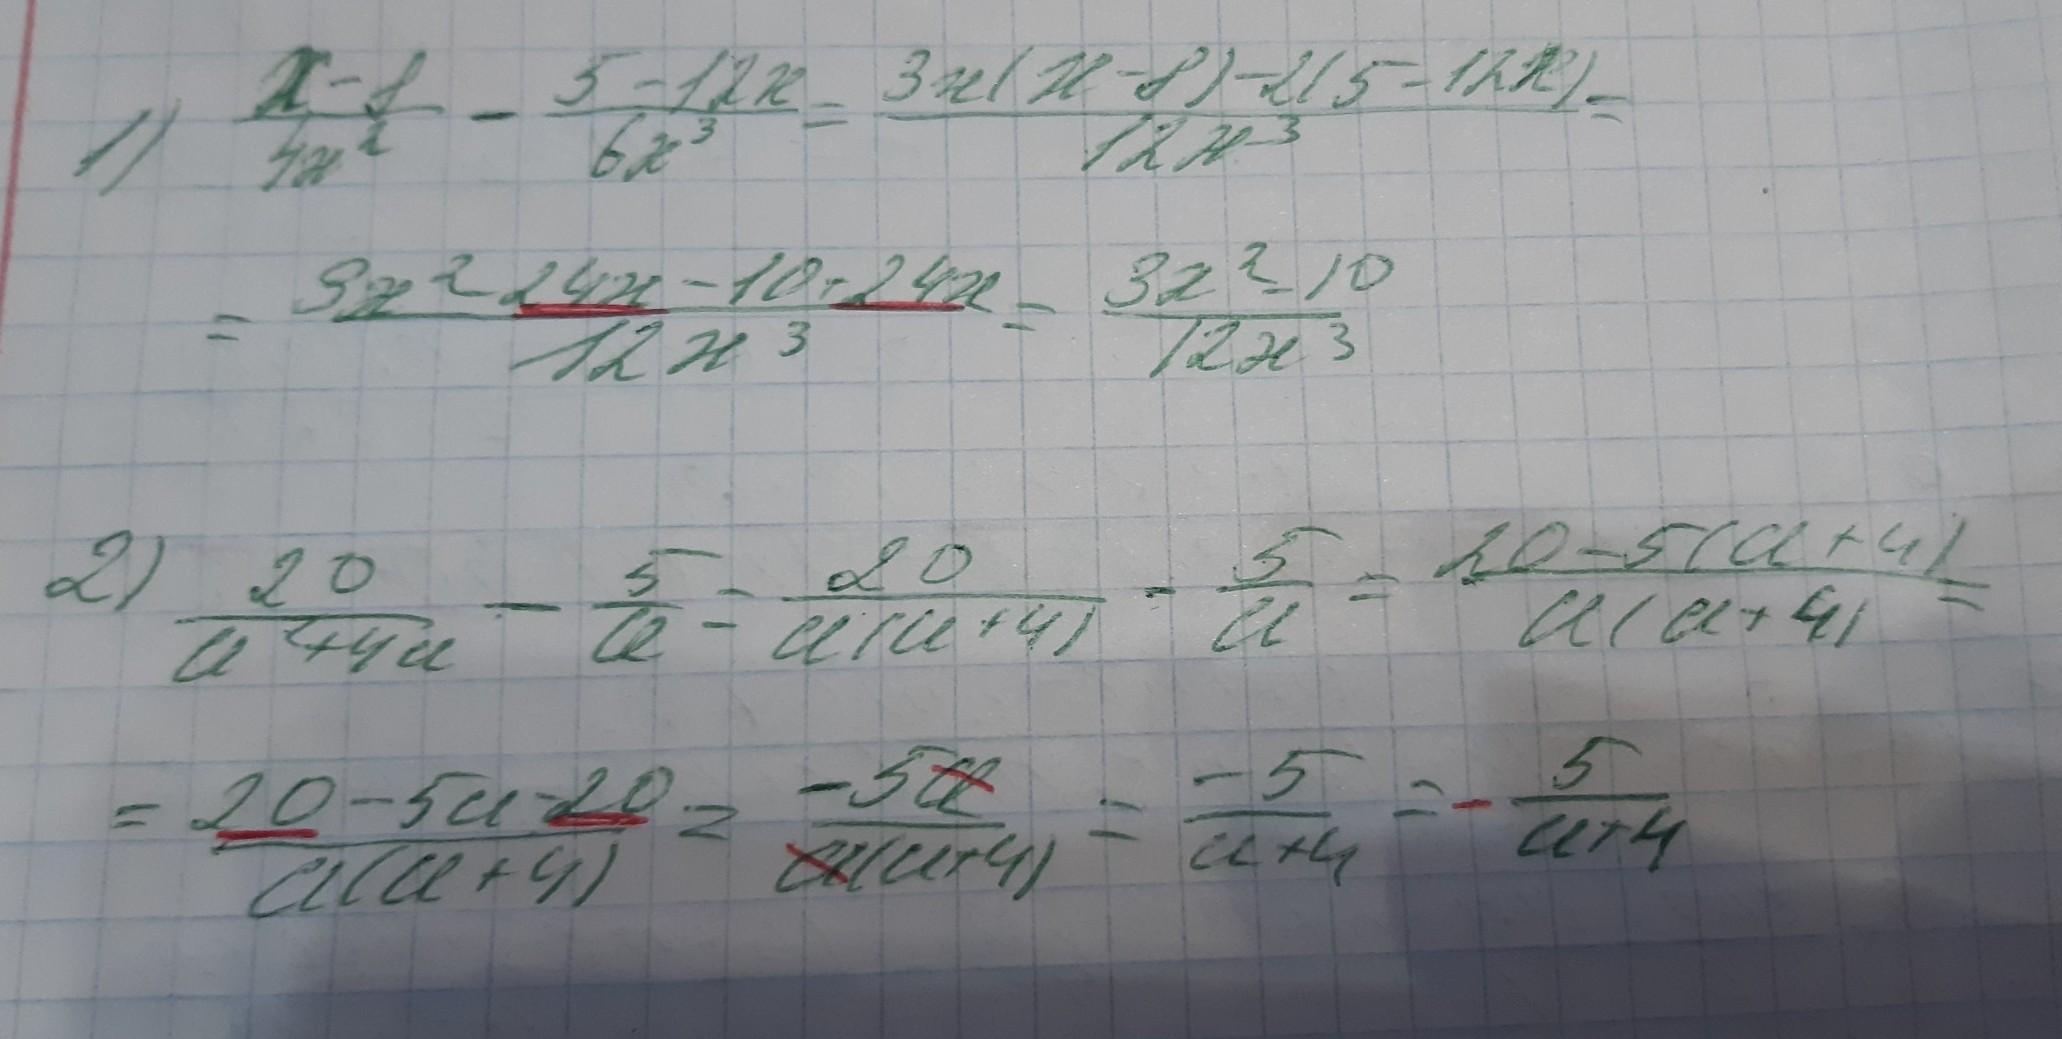 1) (x-8)/(4x²) - (5-12x)/(6x³) = (3x(x-8)-2(5-12x))/(12x³) =
= (3x²-24x-10+24x)/(12x³) = (3x²-10)/(12x³)
2) 20/(a²+4a) - 5/a = 20/(a(a+4)) - 5/a = (20-5(a+4))/(a(a+4)) =
= (20-5a-20)/(a(a+4)) = (-5a)/(a(a+4)) = (-5)/(a+4) = -5/(a+4)